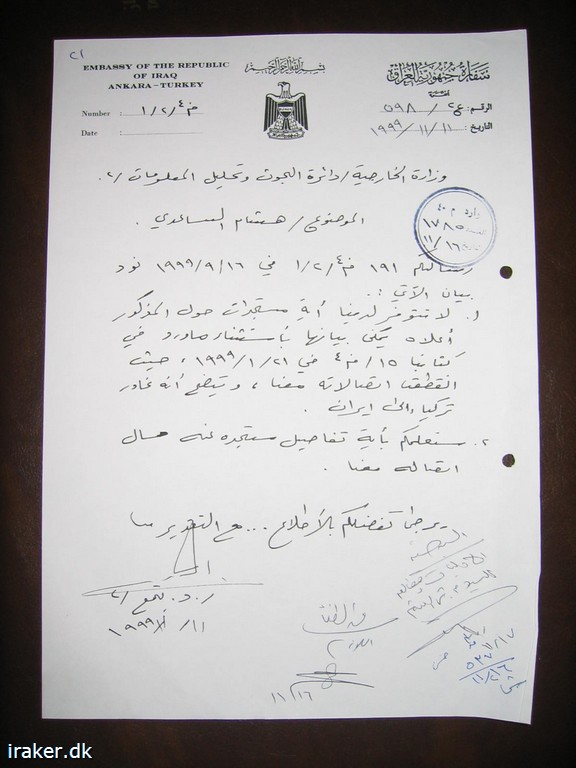 ٢١
EMBASSY OF THE REPUBLIC
OF IRAQ
ANKARA - TURKEY
Number : م٤/٢/١
Date :
بسم الله الرحمن الرحيم
سفارة جمهورية العراق
الرقم: ٥٩٨/
التاريخ: ١٩٩٩/١١/١١
وزارة الخارجية/ دائرة البحوث وتحليل المعلومات /٢.
الموضوع/ هشام الساعدي.
وارد م ٤٠
١٧٨٥
١١/١٦
رسالتكم ١٩١ م٤/٢/١ في ١٩٩٩/٩/١٦ نود
بيان الآتي :.
١. لا تتوفر لدينا أية مستجدات حول المذكور
أعلاه يمكن بيانها بأستثناء ماورد في
كتابنا ١٥/م٤ في ١٩٩٩/١/٢١، حيث
انقطعت اتصالاته معنا، ويتضح أنه غادر
تركيا الى ايران.
٢. سنعلمكم بأية تفاصيل مستجده عنه حال
اتصاله معنا.
يرجى تفضلكم بالأطلاع ... مع التقدير
١٩٩٩
١١/١٦